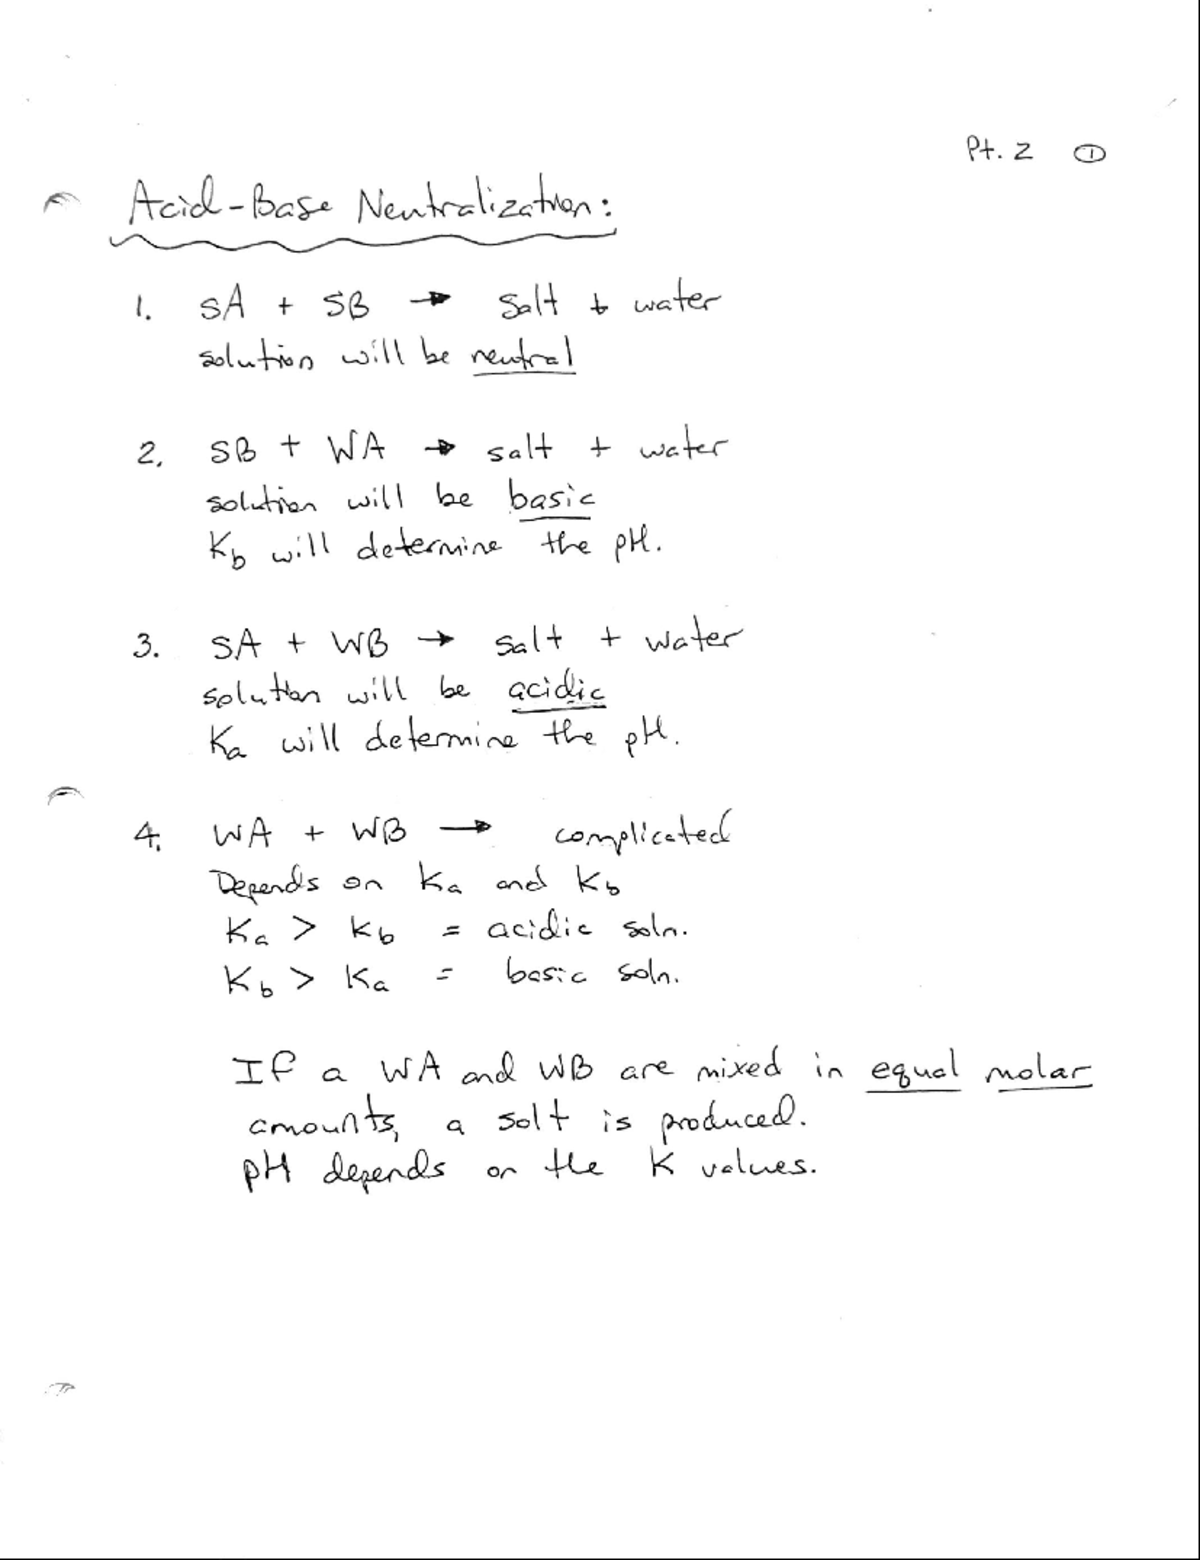 Pt. 2 ①
Acid-Base Neutralization:
1. SA + SB → salt + water
solution will be neutral
2. SB + WA → salt + water
solution will be basic
Kb will determine the pH.
3. SA + WB → salt + water
solution will be acidic
Ka will determine the pH.
4. WA + WB → complicated
Depends on Ka and Kb
Ka > Kb = acidic soln.
Kb > Ka = basic soln.
If a WA and WB are mixed in equal molar
amounts, a salt is produced.
pH depends on the K values.